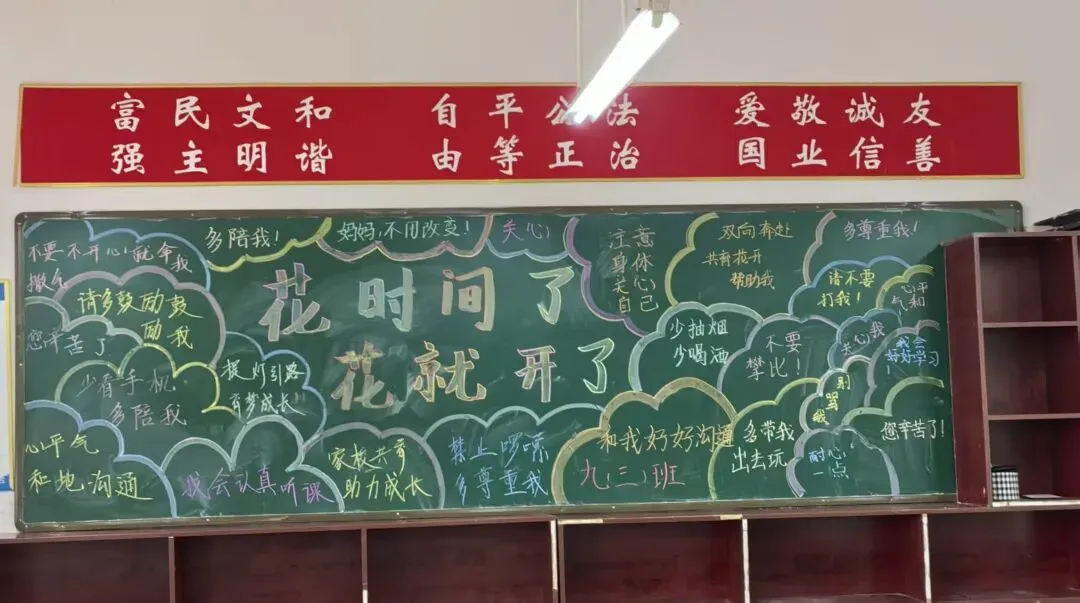 富民文和
强主明谐
自平公法
由等正治
爱敬诚友
国业信善
花时间了
花就开了
不要不开心就拿我
撒气
多陪我!
妈妈,不用改变!
关心
注意
身体
关心
自己
双向奔赴
共育花开
帮助我
多尊重我!
请多鼓励鼓
励我
您辛苦了
少看手机
多陪我
提灯引路
育梦成长!
少抽烟
少喝酒
不要
攀比!
请不要
打我!
心平
气和
关心我
我会
好好学习
!
别
骂
我
您辛苦了!
心平气
和地沟通
我会认真听课
家校共育
助力成长
禁止啰嗦
多尊重我
和我好好沟通
九(三)班
多带我
出去玩
耐心
一点